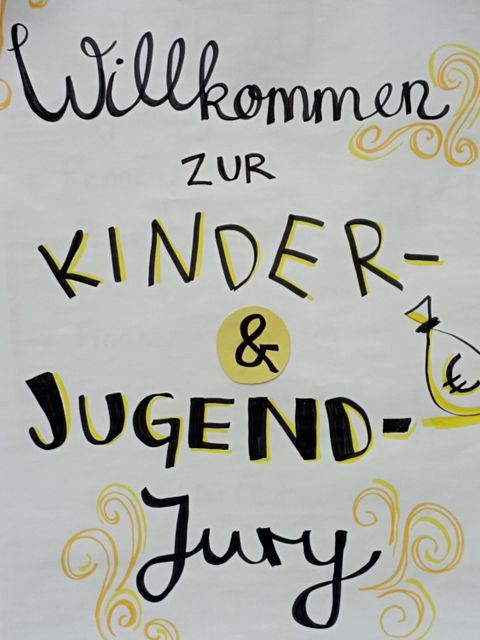 Willkommen
ZUR
KINDER-
&
JUGEND-
€
Jury